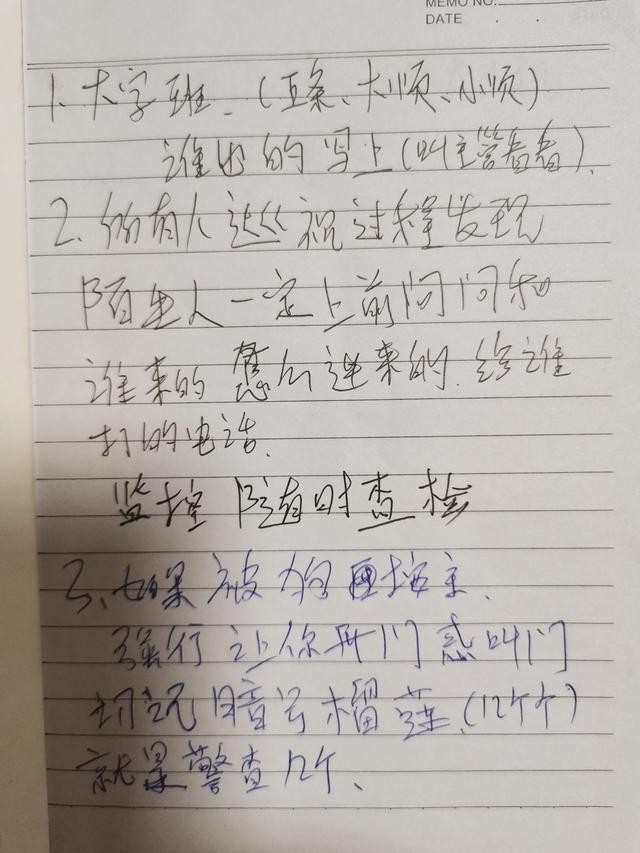 MEMO NO.
DATE . .
1、大字班、(五条、大顺、小顺)
谁出的写上(叫主营看着).
2、的有人巡视过程发现
陌生人一定上前问问和
谁来的 怎么进来的.给谁
打的电话.
监控 随时查检
3、如果被狗 控主.
强行让你开门 叫门
切记暗号榴莲.(12个个)
就是警查12个、